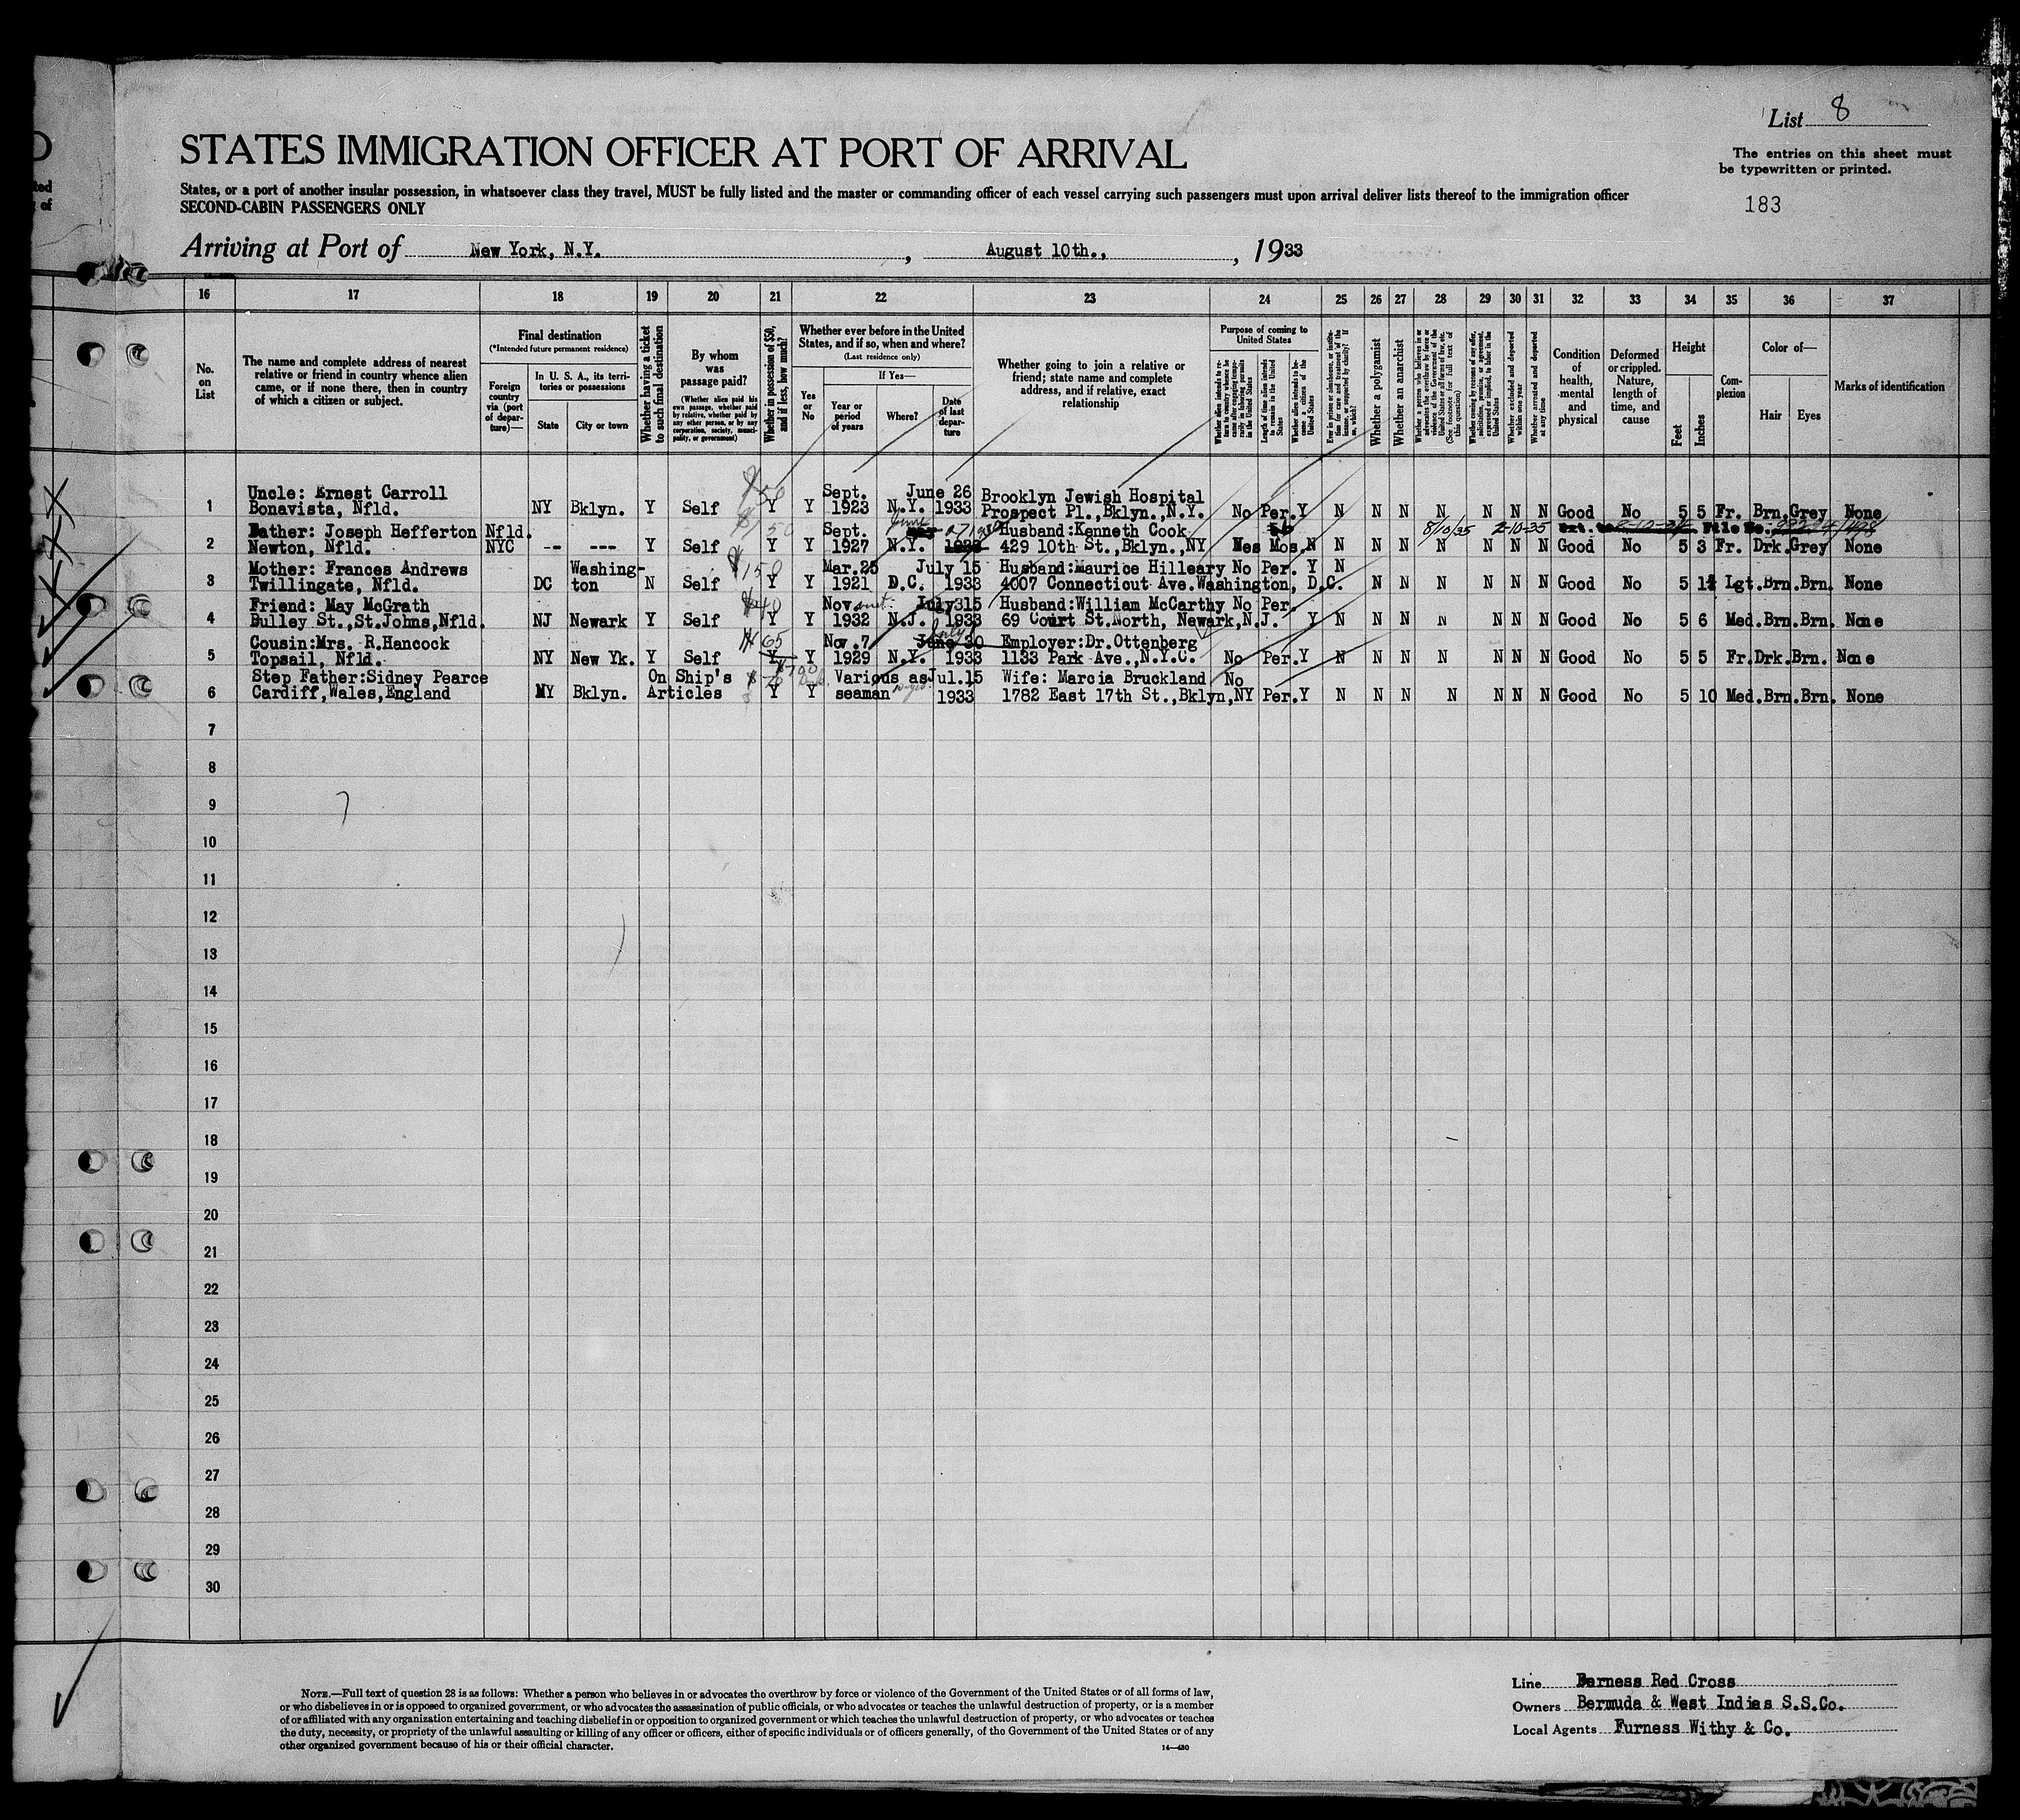 List 8
STATES IMMIGRATION OFFICER AT PORT OF ARRIVAL
The entries on this sheet must
be typewritten or printed.
States, or a port of another insular possession, in whatsoever class they travel, MUST be fully listed and the master or commanding officer of each vessel carrying such passengers must upon arrival deliver lists thereof to the immigration officer
SECOND-CABIN PASSENGERS ONLY
183
Arriving at Port of New York, N.Y. , August 10th., , 1933
16 17 18 19 20 21 22 23 24 25 26 27 28 29 30 31 32 33 34 35 36 37
No. on List
The name and complete address of nearest relative or friend in country whence alien came, or if none there, then in country of which a citizen or subject.
Final destination
(*Intended future permanent residence)
Foreign country via (port of departure)—
In U. S. A., its territories or possessions
State
City or town
Whether having a ticket to such final destination
By whom was passage paid?
(Whether alien paid his own passage, whether paid by relative, whether paid by any other person, or by any corporation, society, municipality, or government)
Whether in possession of $50, and if less, how much?
Whether ever before in the United States, and if so, when and where?
(Last residence only)
Yes or No
If Yes—
Year or period of years
Where?
Date of last departure
Whether going to join a relative or friend; state name and complete address, and if relative, exact relationship
Purpose of coming to United States
Whether alien intends to return to country whence he came after engaging temporarily in laboring pursuits in the United States
Length of time alien intends to remain in the United States
Whether alien intends to become a citizen of the United States
Ever in prison or almshouse, or institution for care and treatment of the insane, or supported by charity? If so, which?
Whether a polygamist
Whether an anarchist
Whether a person who believes in or advocates the overthrow by force or violence of the Government of the United States or all forms of law, etc. (See footnote for full text of this question)
Whether coming by reasons of any offer, solicitation, promise, or agreement, expressed or implied, to labor in the United States
Whether excluded and deported within one year
Whether arrested and deported at any time
Condition of health, mental and physical
Deformed or crippled. Nature, length of time, and cause
Height
Feet
Inches
Complexion
Color of—
Hair
Eyes
Marks of identification
Uncle: Ernest Carroll $50 Sept. June 26 Brooklyn Jewish Hospital
1 Bonavista, Nfld. NY Bklyn. Y Self Y Y 1923 N.Y. 1933 Prospect Pl.,Bklyn.,N.Y. No Per. Y N N N N N N N Good No 5 5 Fr. Brn.Grey None
Father: Joseph Hefferton Nfld. $150 Sept. June 27 1932 Husband:Kenneth Cook 8/10/35 2-10-35 File No.
2 Newton, Nfld. NYC -- --- Y Self Y Y 1927 N.Y. 429 10th St.,Bklyn.,NY Mos. N N N N N N N N Good No 5 3 Fr. Drk.Grey None
Mother: Frances Andrews Washing- $150 Mar.25 July 15 Husband:Maurice Hilleary No Per. Y N
3 Twillingate, Nfld. DC ton N Self Y Y 1921 D.C. 1933 4007 Connecticut Ave.Washington, D.C. N N N N N N Good No 5 Lgt.Brn.Brn. None
Friend: May McGrath $40 Nov July 15 Husband:William McCarthy No Per.
4 Bulley St.,St.Johns,Nfld. NJ Newark Y Self Y Y 1932 N.J. 1933 69 Court St.North, Newark,N.J. Y N N N N N N N Good No 5 6 Med.Brn.Brn. None
Cousin:Mrs. R.Hancock 65 Nov.7 June 30 July Employer:Dr.Ottenberg
5 Topsail, Nfld. NY New Yk. Y Self Y Y 1929 N.Y. 1933 1133 Park Ave.,N.Y.C. No Per. Y N N N N N N N Good No 5 5 Fr.Drk.Brn. None
Step Father:Sidney Pearce On Ship's Various as Jul.15 Wife: Marcia Bruckland No
6 Cardiff,Wales,England NY Bklyn. Articles Y Y seaman 1933 1782 East 17th St.,Bklyn,NY Per. Y N N N N N N N Good No 5 10 Med.Brn.Brn. None
7
8
9
10
11
12
13
14
15
16
17
18
19
20
21
22
23
24
25
26
27
28
29
30
NOTE.—Full text of question 28 is as follows: Whether a person who believes in or advocates the overthrow by force or violence of the Government of the United States or of all forms of law,
or who disbelieves in or is opposed to organized government, or who advocates the assassination of public officials, or who advocates or teaches the unlawful destruction of property, or is a member
of or affiliated with any organization entertaining and teaching disbelief in or opposition to organized government or which teaches the unlawful destruction of property, or who advocates or teaches
the duty, necessity, or propriety of the unlawful assaulting or killing of any officer or officers, either of specific individuals or of officers generally, of the Government of the United States or of any
other organized government because of his or their official character.
14—430
Line Furness Red Cross
Owners Bermuda & West Indies S.S.Co.
Local Agents Furness Withy & Co.